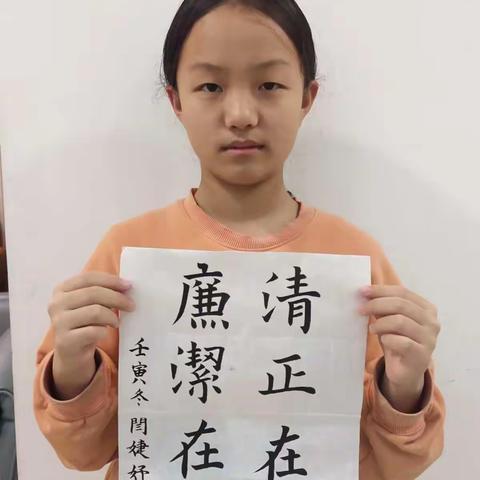 清正在
廉潔在
壬寅冬閆婕妤